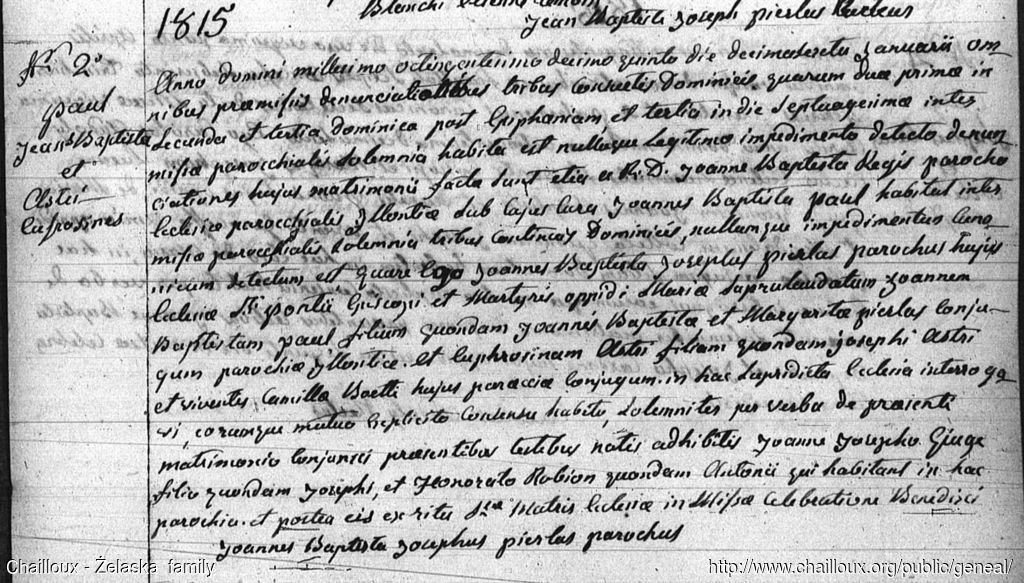 1815
Jean Baptiste Joseph pierlas Recteur
N. 2°
paul
Jean Baptista
et
Astri
Eufrosines
Anno domini millesimo octingentesimo decimo quinto die decimatertia Januarii om
nibus præmissis denunciationibus tribus Consuetis Dominicis, quarum duæ primæ in
secunda et tertia dominica post Epiphaniam et tertia in die Septuagesimæ inter
missæ parocchialis solemnia habita est nulloque Legitimo impedimento detecto denun
ciationes hujus matrimonii factæ sunt etia a R. D. Joanne Baptista Regis parocho
Ecclesiæ parocchialis Illontiæ sub cujus cura Joannes Baptista paul habitat inter
missæ parocchialis solemnia tribus continuis Dominicis, nullumque impedimentum Cano
nicum detectum est quare Ego Joannes Baptista Josephus pierlas parochus hujus
Ecclesiæ Sti pontii Episcopi et Martyris oppidi Mariæ supralaudatum Joannem
Baptistam paul filium quondam Joannis Baptistæ et Margaritæ pierlas conju-
gum parochiæ Illontiæ. et Euphrosinam Astri filiam quondam josephi Astri
et viventis Camillæ Boetti hujus parœciæ Conjugum. in hac supradicta Ecclesia interroga
vi, eorumque mutuo explicito consensu habito, solemniter per verba de præsenti
matrimonio Conjunxi præsentibus testibus notis adhibitis Joanne Josepho Giuge
filio quondam Josephi, et Honorato Robion quondam Antonii qui habitant in hac
parochia. et postea eis ex ritu Stæ Matris Ecclesiæ in Missæ Celebratione Benedixi
Joannes Baptista Josephus pierlas parochus
Chailloux - Żelaska family
http://www.chailloux.org/public/geneal/